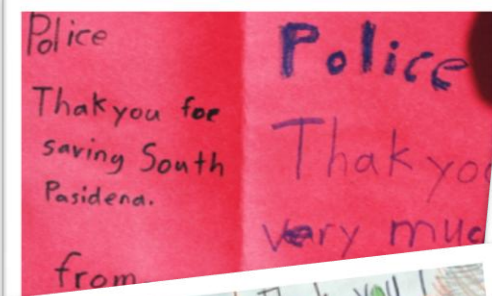 Police
Thakyou for
saving South
Pasidena.
from
Police
Thak you
very muc
you